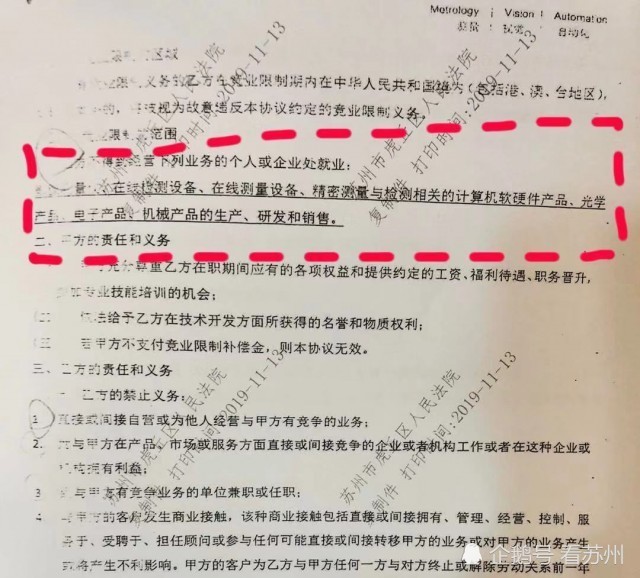 Metrology | Vision | Automation
自动化
限制 区域
业限制义务的乙方在竞业限制期内在中华人民共和国境内(包括港、澳、台地区),
的, 视为故意违反本协议约定的竞业限制义务
业限制 范围
不得到经营下列业务的个人或企业处就业:
量 在线检测设备、在线测量设备、精密测量与检测相关的计算机软硬件产品、光学
产品、电子产品、机械产品的生产、研发和销售。
二、甲方的责任和义务
充分尊重乙方在职期间应有的各项权益和提供约定的工资、福利待遇、职务晋升,
专业技能培训的机会;
给予乙方在技术开发方面所获得的名誉和物质权利;
若甲方不支付竞业限制补偿金,则本协议无效。
三、乙方的责任和义务
一 乙方的禁止义务:
1 直接或间接自营或为他人经营与甲方有竞争的业务;
2 与甲方在产品、市场或服务方面直接或间接竞争的企业或者机构工作或者在这种企业或
机构拥有利益;
3 与甲方有竞争业务的单位兼职或任职;
4 与甲方的客户发生商业接触,该种商业接触包括直接或间接拥有、管理、经营、控制、服
务于、受聘于、担任顾问或参与任何可能直接或间接转移甲方的业务或对甲方的业务产生
或将产生不利影响。甲方的客户为乙方与甲方任何一方与对方终止或解除劳动关系前一年
苏州市虎丘区人民法院
复制件 打印时间:2019-11-13
苏州市虎丘区人民法院
复制件 打印时间:2019-11-13
苏州市虎丘区人民法院
复制件 打印时间:2019-11-13
苏州市虎丘区人民法院
复制件 打印时间:2019-11-13
企鹅号 看苏州